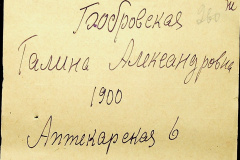 Бобровская
Галина Александровна
1900
Аптекарская 6